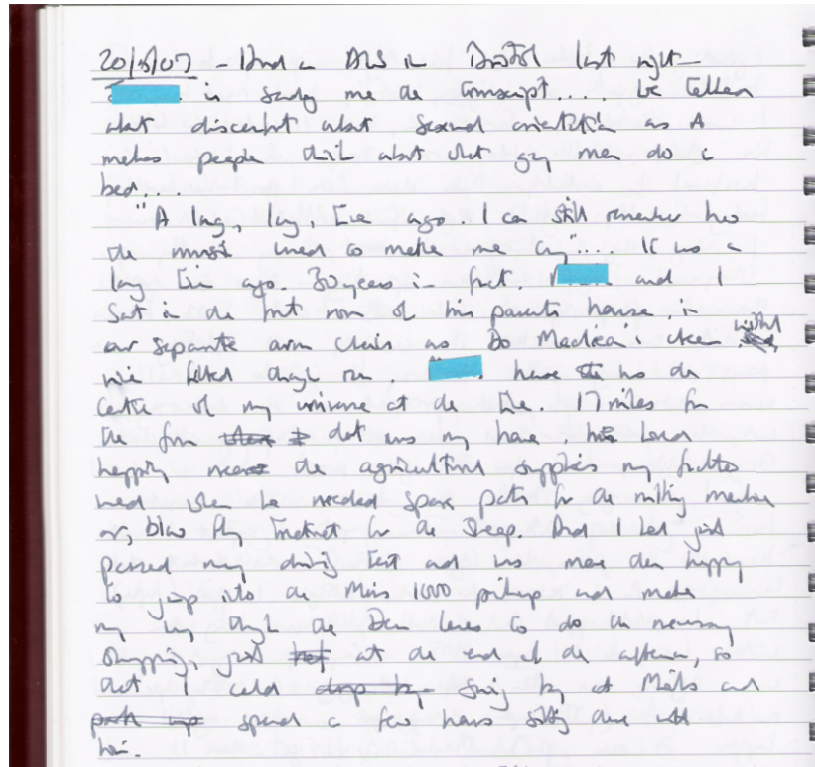 20/5/07 - Had a in Bristol last night -
is sending me the transcript.... he talked
about discomfort about sexual orientation as it
makes people think about what gay men do in
bed....
"A long, long, time ago. I can still remember how
the music used to make me cry".... It was a
long time ago. 30 years in fact. and I
sat in the front room of his parents house, in
our separate arm chairs as Don Maclean's clean
voice lilted through the room. house was the
centre of my universe at the time. 17 miles from
the farm that was my home. his
happily near the agricultural suppliers my father
used when he needed spare parts for the milking machine
or, blow fly treatment for the sheep. And I had just
passed my driving test and was more than happy
to jump into the Minor 1000 pickup and make
my way through the lanes to do the necessary
shopping, just at the end of the afternoon, so
that I could swing by at and
spend a few hours sitting there with
him.